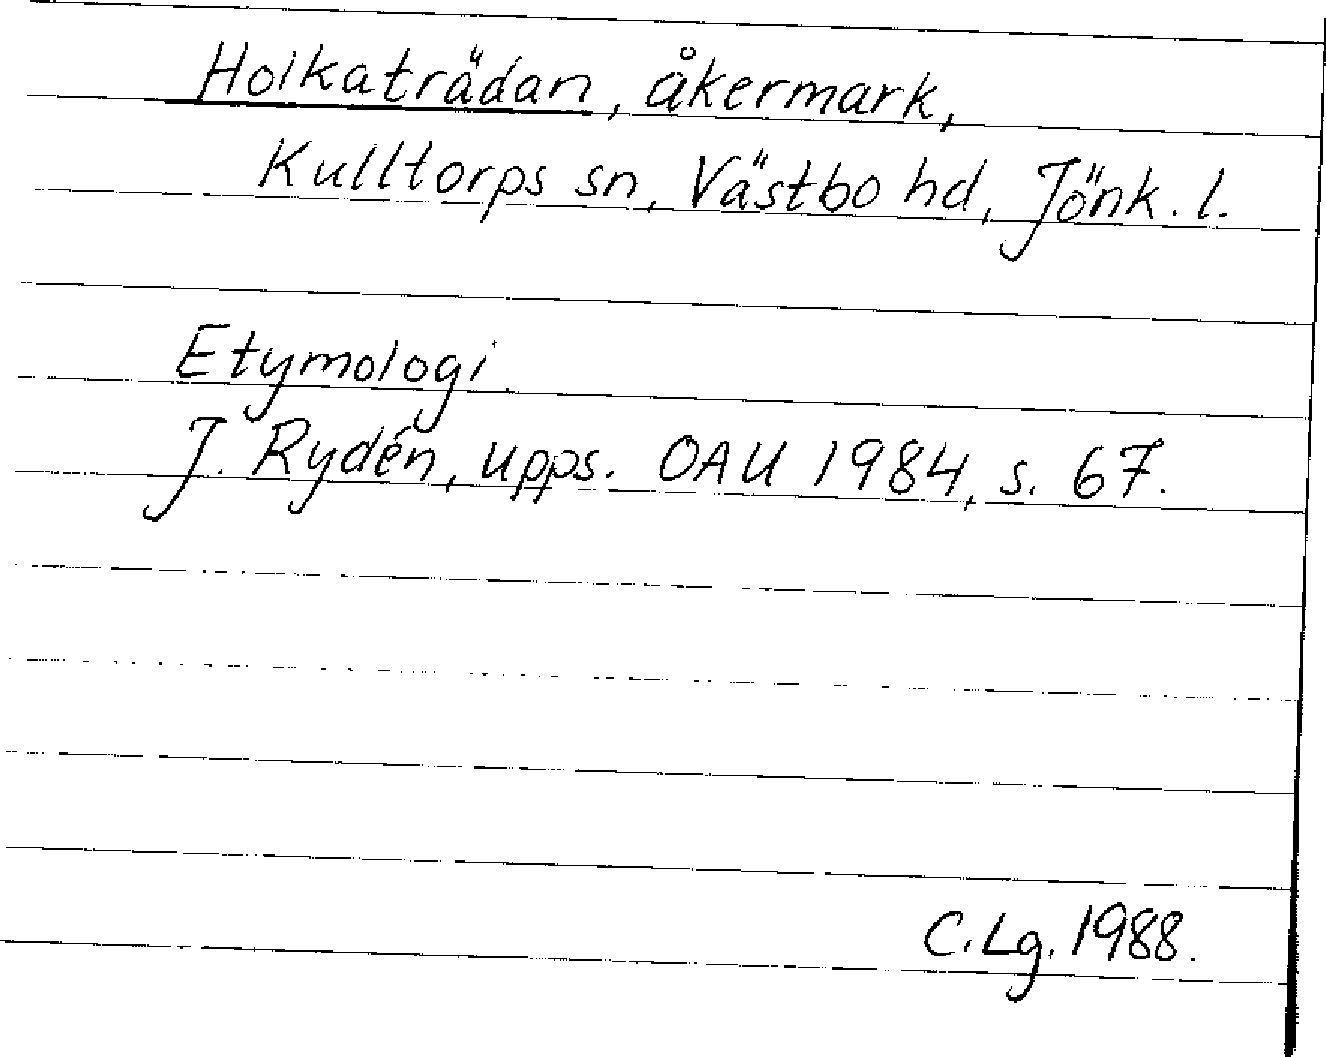 Holkaträdan, åkermark,
Kulltorps sn, Västbo hd, Jönk. l.
Etymologi.
J. Rydén, upps. OAU 1984, s. 67.
C.Lg. 1988.